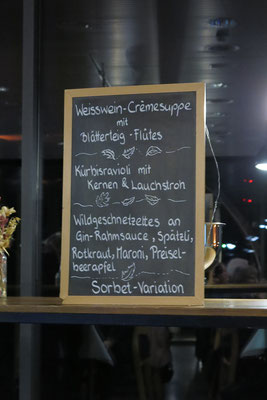 Weisswein-Crèmesuppe
mit
Blätterteig-Flûtes
Kürbisravioli mit
Kernen & Lauchstroh
Wildgeschnetzeltes an
Gin-Rahmsauce, Spätzli,
Rotkraut, Maroni, Preisel-
beerapfel
Sorbet-Variation